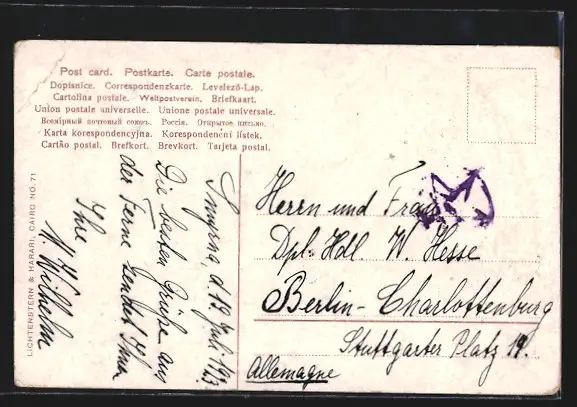 Post card. Postkarte. Carte postale.
Dopisnice. Correspondenzkarte. Levelező-Lap.
Cartolina postale. Weltpostverein. Briefkaart.
Union postale universelle. Unione postale universale.
Всемірный почтовый союзъ. Россія. Открытое письмо.
Karta korespondencyjna. Korespondenční lístek.
Cartão postal. Brefkort. Brevkort. Tarjeta postal.
LICHTENSTERN & HARARI, CAIRO NO. 71
Smyrna, d. 12 Juli 1923
Die besten Grüße aus
der Ferne sendet Ihnen
Ihr
W. Wilhelm
Herrn und Frau
Dpl. Hdl. W. Hesse
Berlin-Charlottenburg
Stuttgarter Platz 19.
Allemagne